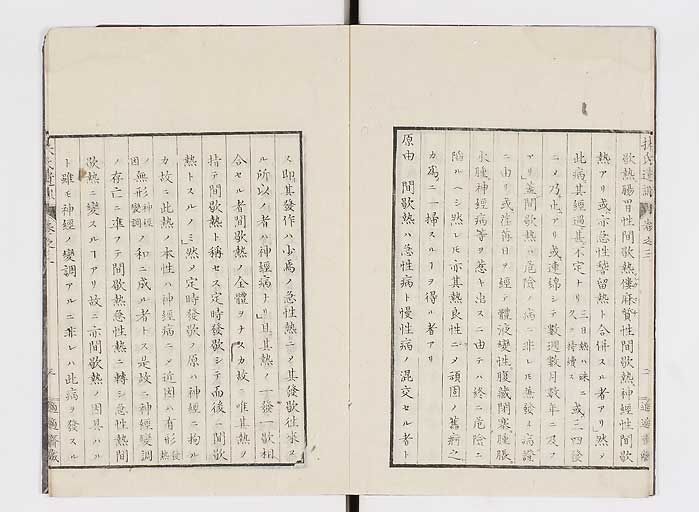 歇熱腸胃性間歇熱僂麻質性間歇熱神經性間歇
熱アリ或ハ亦急性稽留熱ト合併スル者アリ然メ
此病其經過甚不定トリ
三日熱ハ殊ニ
久ク持續ス
或三四發
ニメ乃止アリ或連綿シテ數週數月數年ニ及フ
アリ蓋間歇熱ハ危險ノ病ニ非レ
ニ由リ或
日ヲ經テ體液變性腹藏閉塞腫脹
水腫神經病等ヲ惹キ出スニ由テハ終ニ危險ニ
陷ルヘシ然レ𪜈亦其熱良性ニメ頑固ノ舊痾之
カ爲ニ一掃スルヿヲ得ル者アリ
原由 間歇熱ハ急性病ト慢性病ノ混交セル者ト
ス即其發作ハ少焉ノ急性熱ニメ其發歇往來ス
ル所以ノ者ハ神經病トリ且其熱ノ一發一歇相
合セル者間歇熱ノ全體ヲナス カ故ニ唯其熱ヲ
持テ間歇熱ト稱セス定時發歇シテ而後ニ間歇
熱トスルノミ然メ定時發歇ノ原ハ神經ニ拘ル
カ故ニ此熱ノ本性ハ神經病ニメ近因ハ有形
發
熱
因
ノ無形
神經
變調
ノ和ニ成ル者トス是故ニ神經變調
ノ存亡ニ準フテ間歇熱急性熱ニ轉シ急性熱間
歇熱ニ變スルヿアリ故ニ亦間歇熱ノ因具ハル
ト雖モ神經ノ變調アルニ非レハ此病ヲ發スル
卷之三
二
適適齋藏
適適齋藏